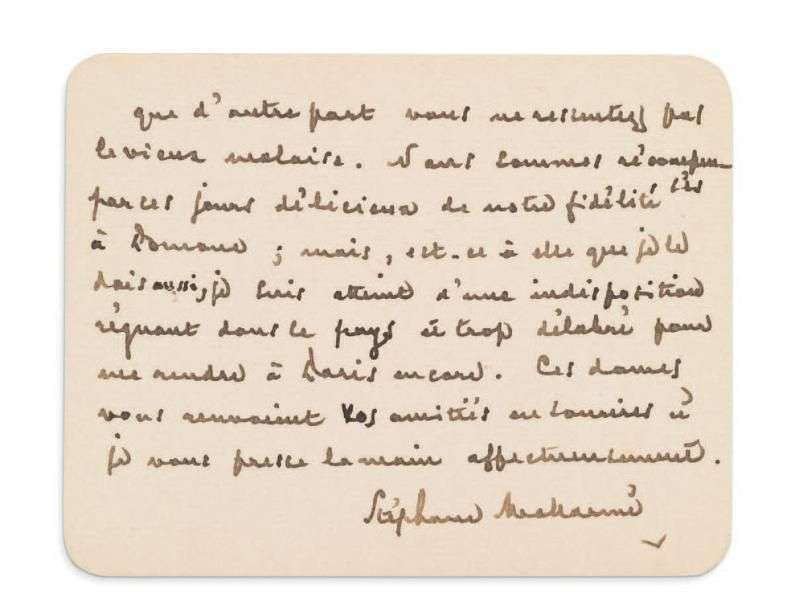 que d'autre part vous ne ressentez pas
le vieux malaise. Nous sommes récompen-
sés
par ces jours délicieux de notre fidélité
à Pomone ; mais, est-ce à elle que je le
dois aussi, je suis atteint d'une indisposition
régnant dans le pays et trop délabré pour
me rendre à Paris encore. Ces dames
vous renvoient vos amitiés en sourires et
je vous presse la main affectueusement.
Stéphane Mallarmé